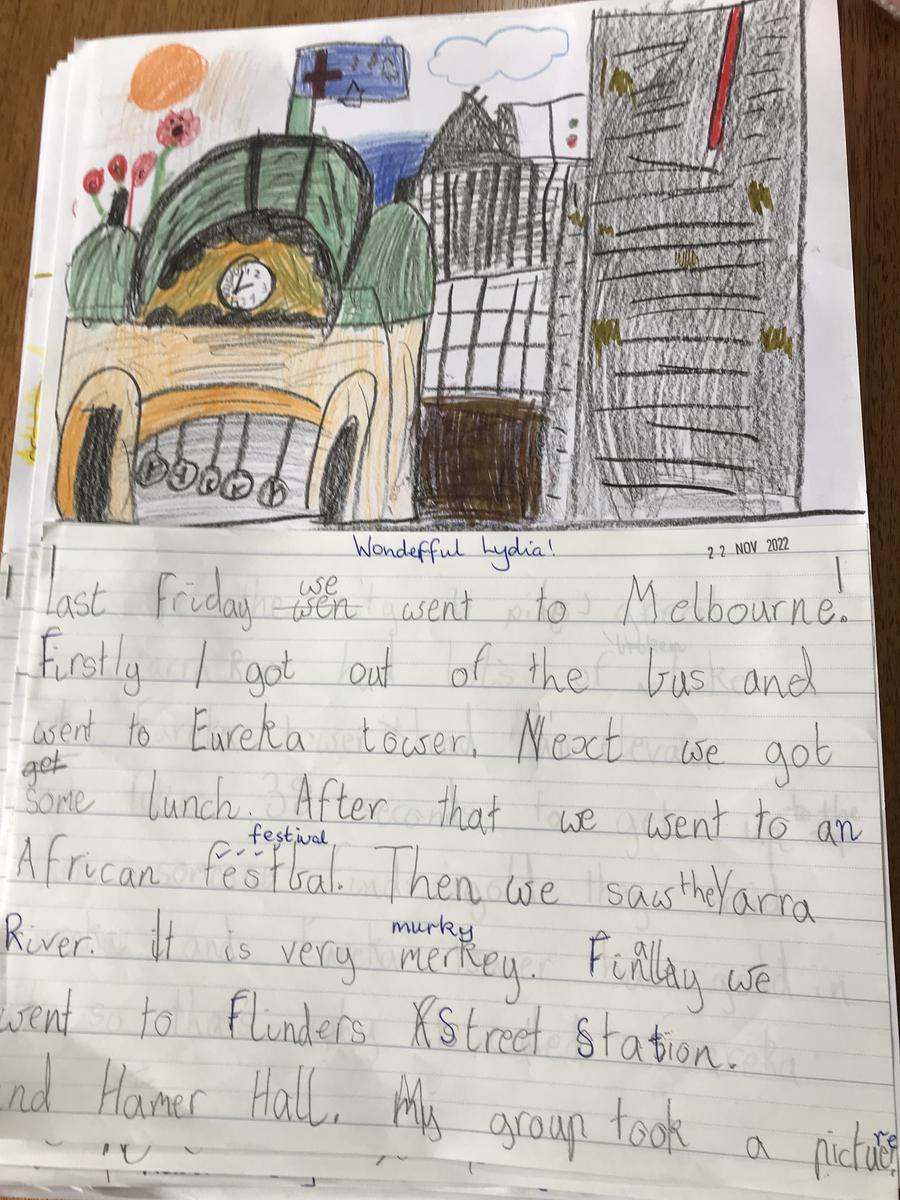 Wondefful Lydia!
22 NOV 2022
last Friday wen we went to Melbourne.
Firstly I got out of the bus and
went to Eureka towser. Next we got
get
some lunch. After that we went to an
festival
African festbal. Then we saw the Yarra
murky
River. It is very merkey. Finally we
went to Flinders Street Station.
nd Hamer Hall. My group took a picture